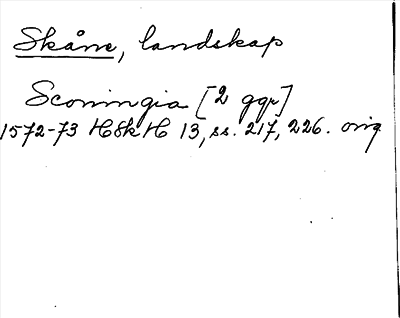 Skåne, landskap
Sconingia [2 ggr]
1572-73 HSkH 13, ss. 217, 226. orig